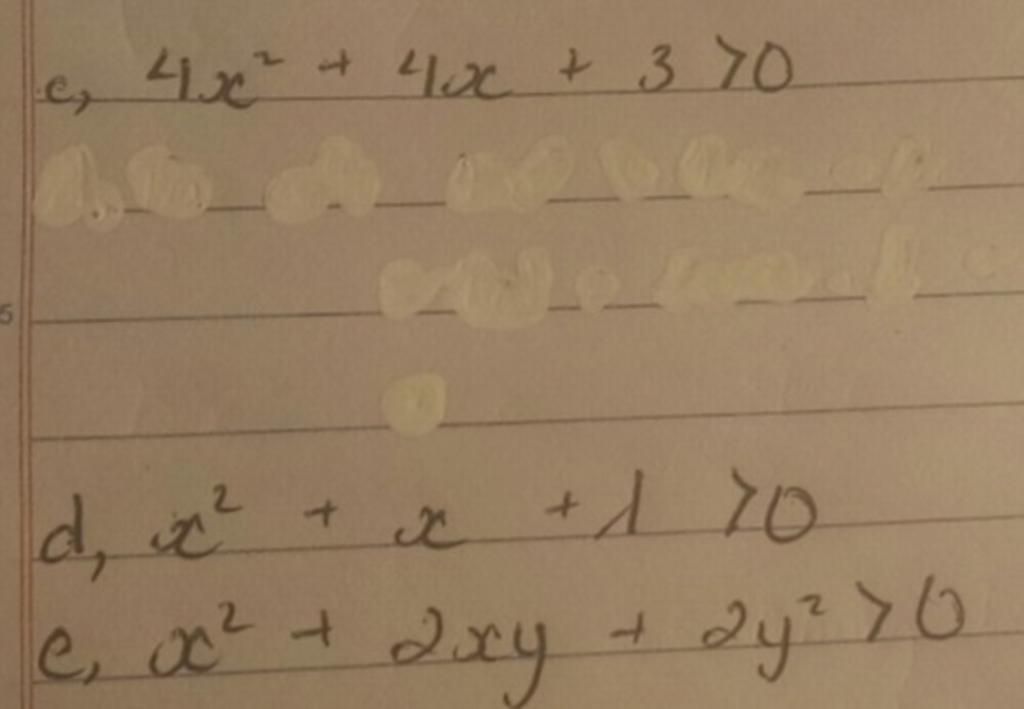 c, 4x² + 4x + 3 >0
5
d, x² + x + 1 >0
e, x² + 2xy + 2y² >0